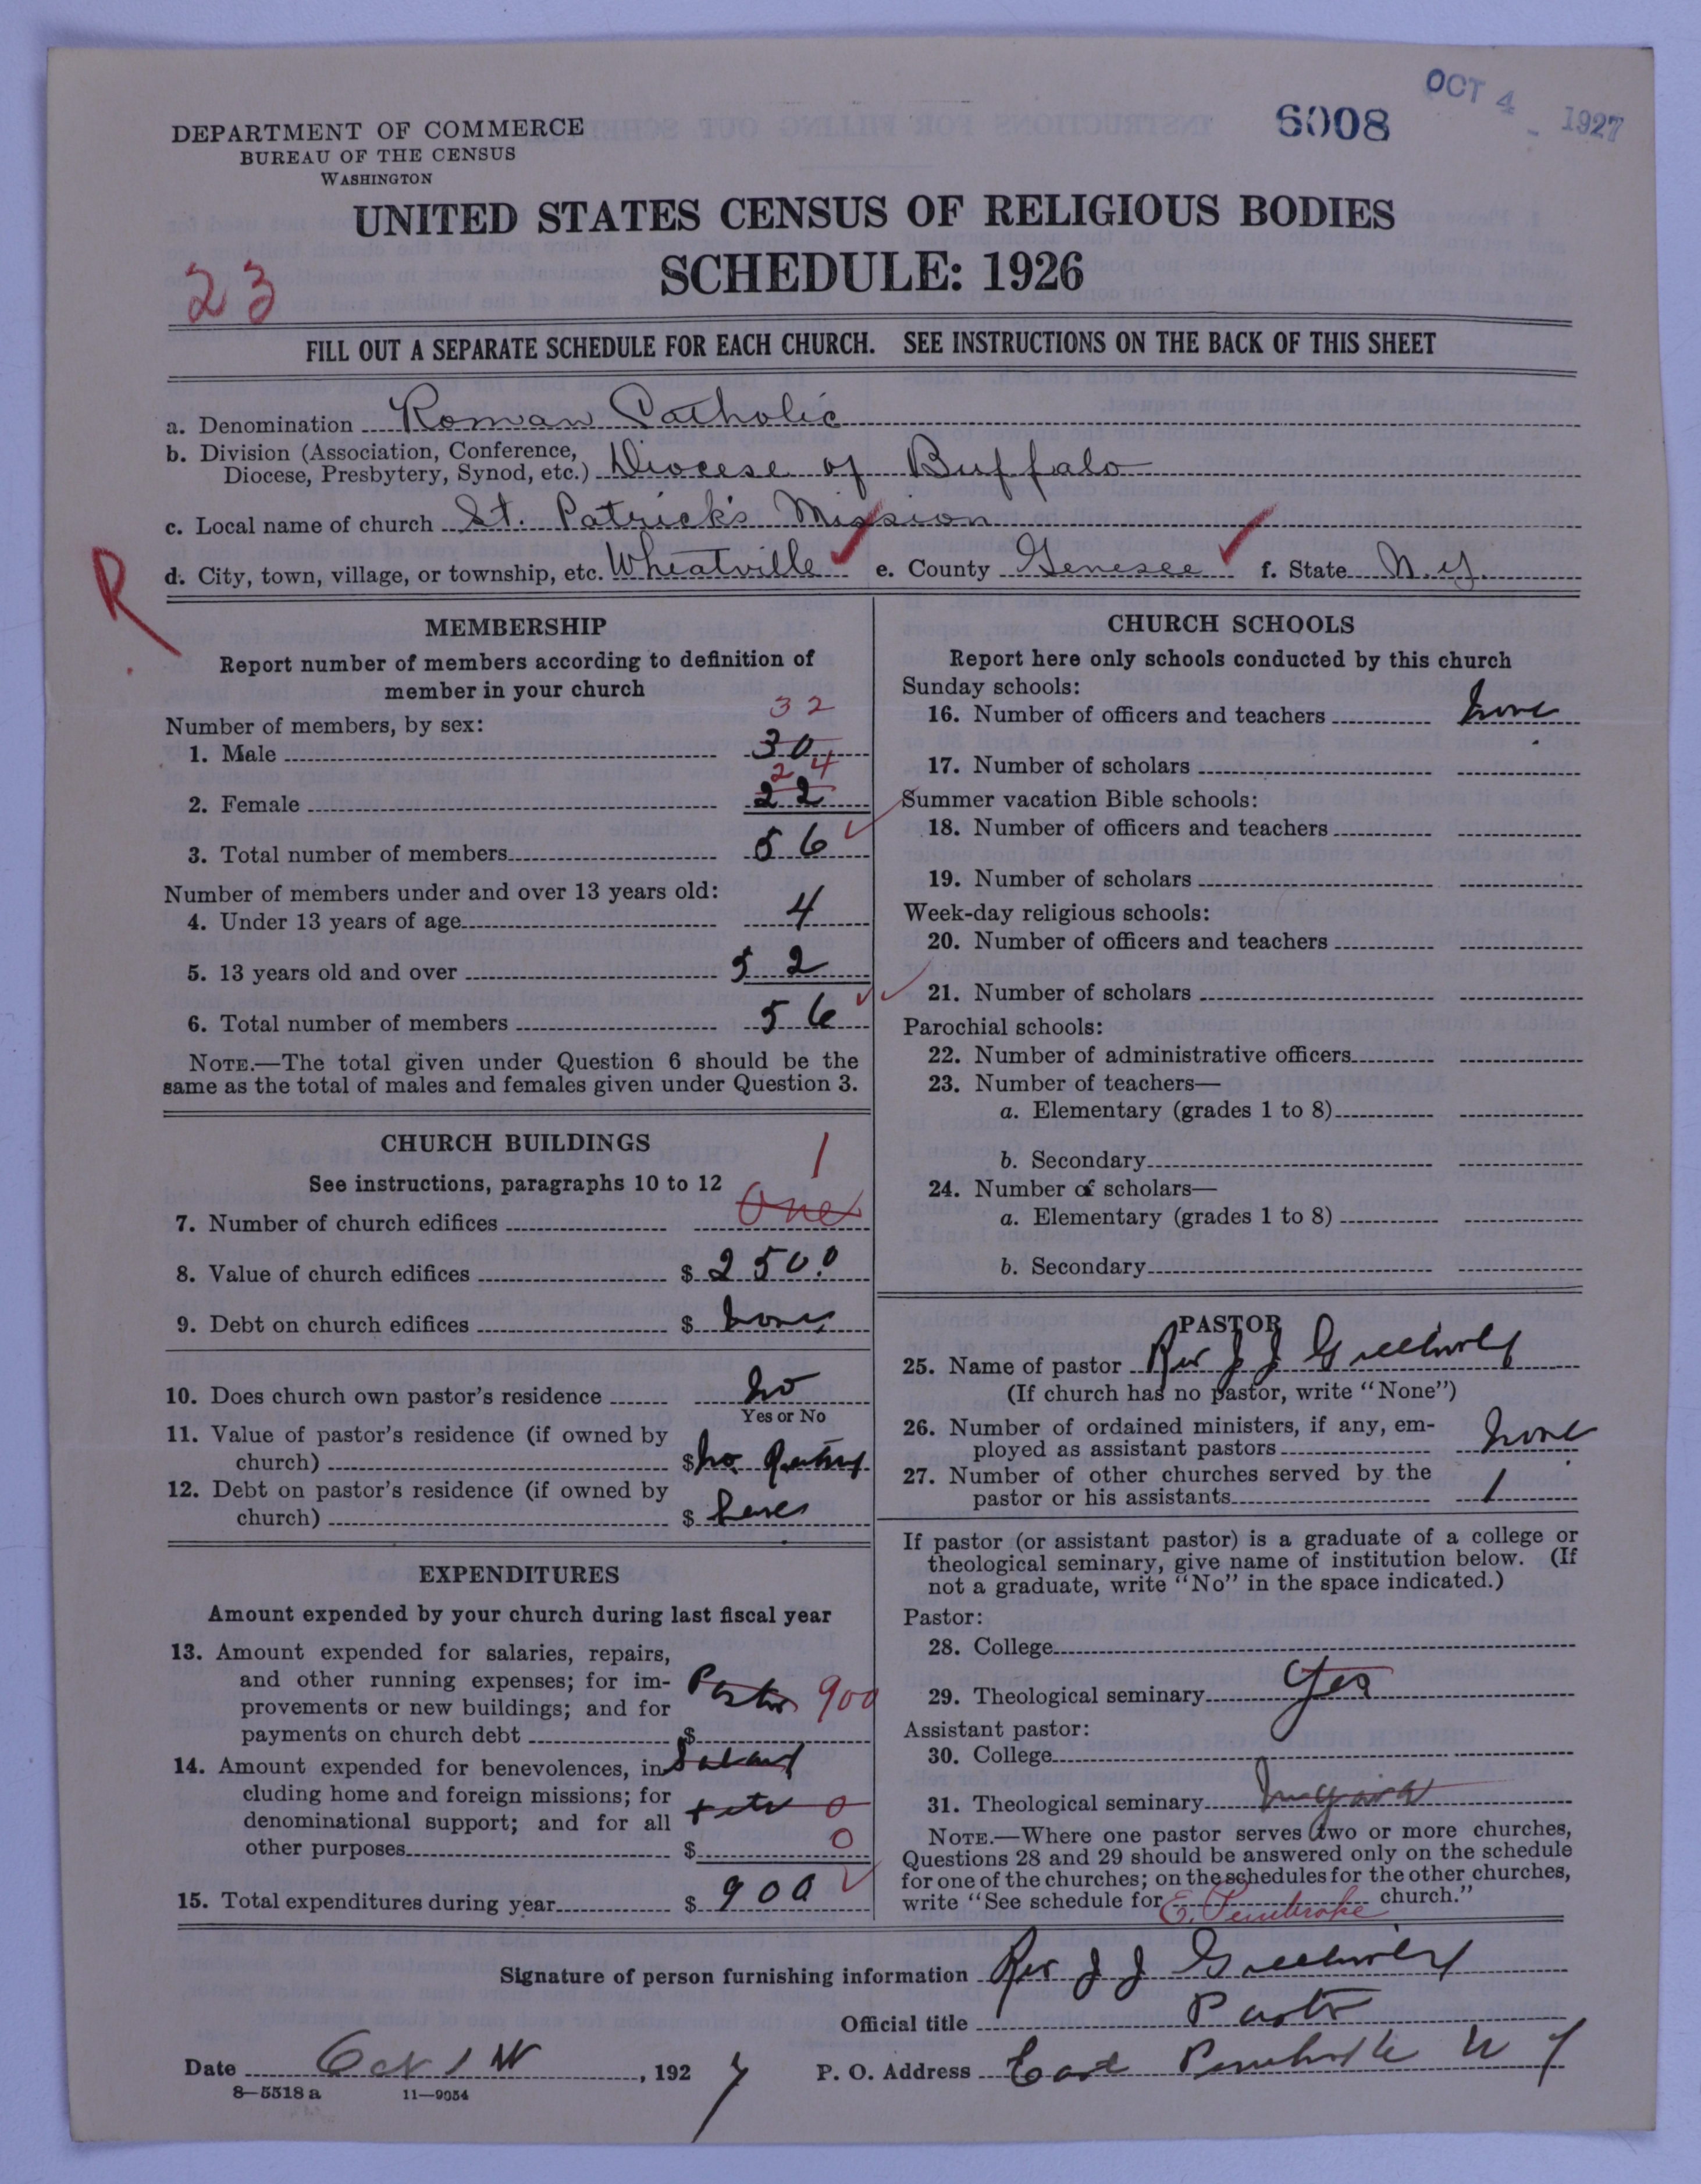 OCT 4 1927
6008
DEPARTMENT OF COMMERCE
BUREAU OF THE CENSUS
WASHINGTON
UNITED STATES CENSUS OF RELIGIOUS BODIES
SCHEDULE: 1926
23
FILL OUT A SEPARATE SCHEDULE FOR EACH CHURCH. SEE INSTRUCTIONS ON THE BACK OF THIS SHEET
a. Denomination Roman Catholic
b. Division (Association, Conference,
Diocese, Presbytery, Synod, etc.) Diocese of Buffalo
c. Local name of church St. Patrick's Mission
d. City, town, village, or township, etc. Wheatville e. County Genesee f. State N.Y.
R
MEMBERSHIP
Report number of members according to definition of
member in your church
Number of members, by sex:
32
1. Male 30
24
2. Female 22
3. Total number of members 56
Number of members under and over 13 years old:
4. Under 13 years of age 4
5. 13 years old and over 52
6. Total number of members 56
NOTE.—The total given under Question 6 should be the
same as the total of males and females given under Question 3.
CHURCH BUILDINGS
See instructions, paragraphs 10 to 12
1
7. Number of church edifices One
8. Value of church edifices $ 2500
9. Debt on church edifices $ none
10. Does church own pastor's residence no
Yes or No
11. Value of pastor's residence (if owned by
church) $ no
12. Debt on pastor's residence (if owned by
church) $
EXPENDITURES
Amount expended by your church during last fiscal year
13. Amount expended for salaries, repairs,
and other running expenses; for im-
provements or new buildings; and for
payments on church debt $ Pastor 900
14. Amount expended for benevolences, in-
cluding home and foreign missions; for
denominational support; and for all
other purposes $ Salary + etc 0
0
15. Total expenditures during year $ 900
CHURCH SCHOOLS
Report here only schools conducted by this church
Sunday schools:
16. Number of officers and teachers none
17. Number of scholars
Summer vacation Bible schools:
18. Number of officers and teachers
19. Number of scholars
Week-day religious schools:
20. Number of officers and teachers
21. Number of scholars
Parochial schools:
22. Number of administrative officers
23. Number of teachers—
a. Elementary (grades 1 to 8)
b. Secondary
24. Number of scholars—
a. Elementary (grades 1 to 8)
b. Secondary
PASTOR
25. Name of pastor Rev J J
(If church has no pastor, write "None")
26. Number of ordained ministers, if any, em-
ployed as assistant pastors none
27. Number of other churches served by the
pastor or his assistants 1
If pastor (or assistant pastor) is a graduate of a college or
theological seminary, give name of institution below. (If
not a graduate, write "No" in the space indicated.)
Pastor:
28. College
29. Theological seminary Yes
Assistant pastor:
30. College
31. Theological seminary Niagara
NOTE.—Where one pastor serves two or more churches,
Questions 28 and 29 should be answered only on the schedule
for one of the churches; on the schedules for the other churches,
write "See schedule for E. Pembroke church."
Signature of person furnishing information Rev J J
Official title Pastor
Date Oct 1st, 1927 P. O. Address East Pembroke N Y
8—5518 a 11—9054